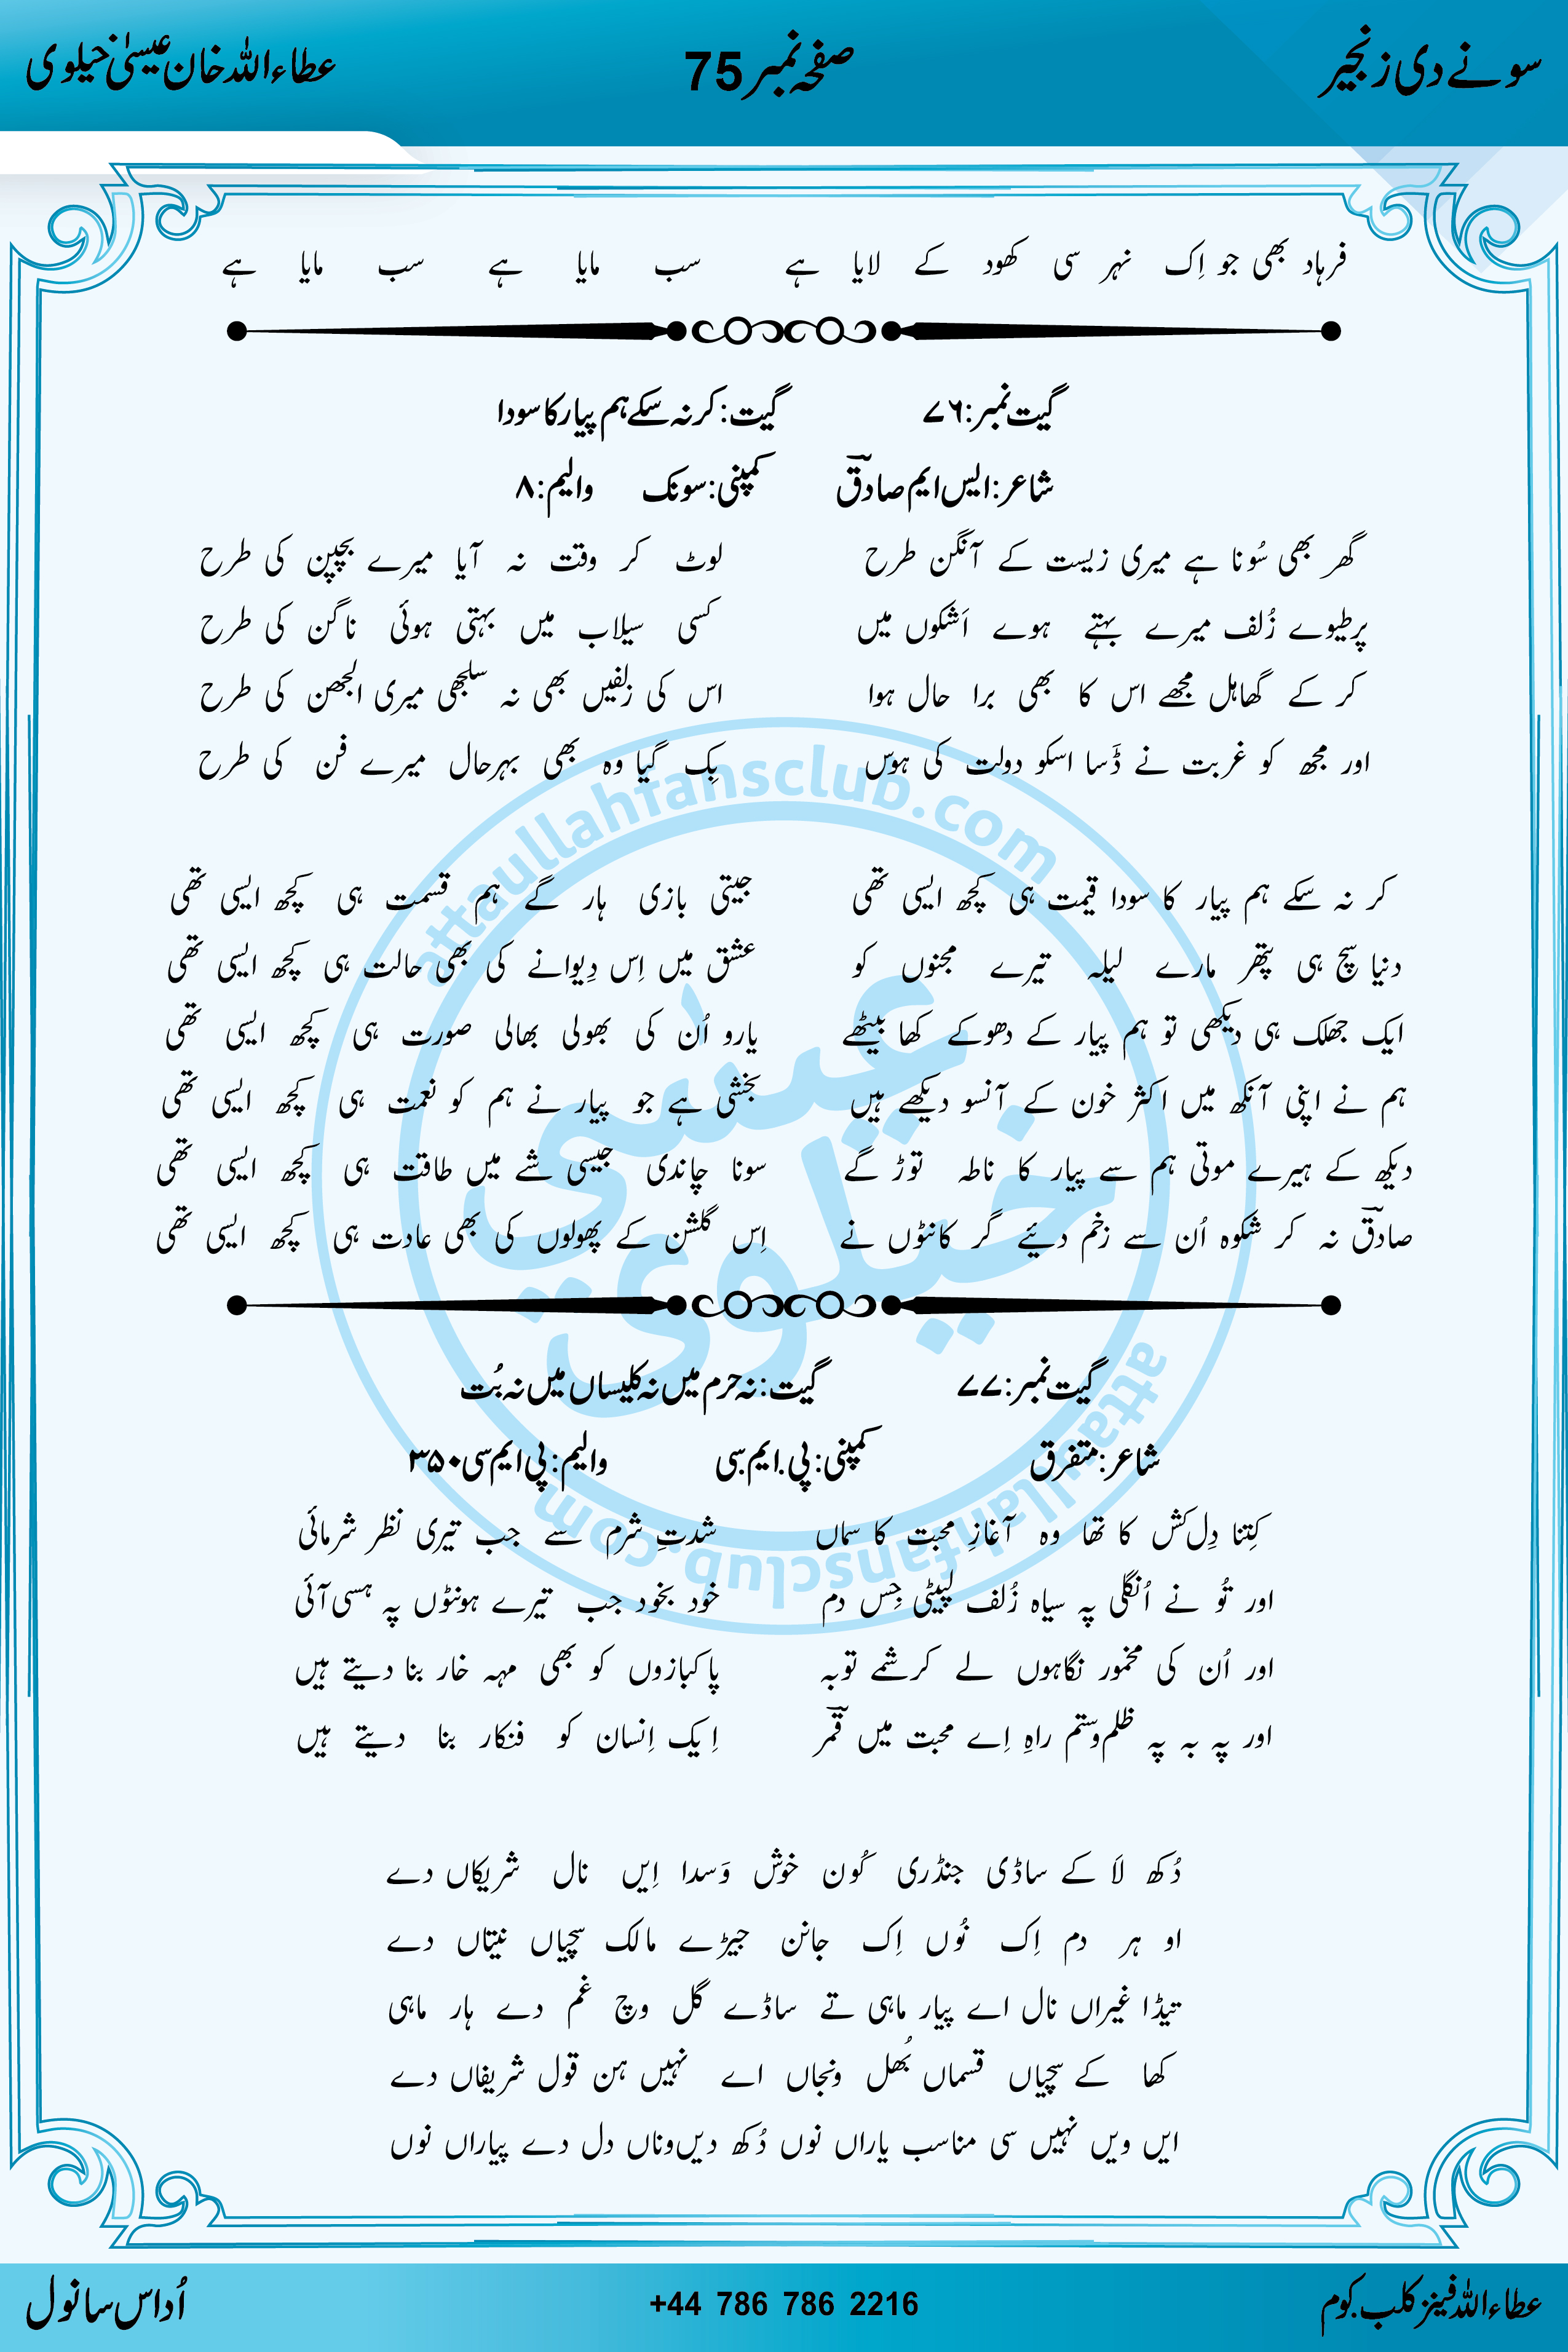 سونے دی زنجیر صفحہ نمبر 75 عطاءاللہ خان عیسیٰ خیلوی
فرہاد بھی جو اِک نہر سی کھود کے لایا ہے سب مایا ہے سب مایا ہے
گیت نمبر: ۷۶ گیت: کر نہ سکے ہم پیار کا سودا
شاعر: ایس ایم صادقؔ کمپنی: سونک والیم: ۸
گھر بھی سُونا ہے میری زیست کے آنگن طرح لوٹ کر وقت نہ آیا میرے بچپن کی طرح
پرطیوے زُلف میرے بہتے ہوے اَشکوں میں کسی سیلاب میں بہتی ہوئی ناگن کی طرح
کر کے گھاہل مجھے اس کا بھی برا حال ہوا اس کی زلفیں بھی نہ سلجھی میری الجھن کی طرح
اور مجھ کو غربت نے ڈَسا اسکو دولت کی ہوس بِک گیا وہ بھی بہرحال میرے فن کی طرح
کر نہ سکے ہم پیار کا سودا قیمت ہی کچھ ایسی تھی جیتی بازی ہار گے ہم قسمت ہی کچھ ایسی تھی
دنیا سچ ہی پتھر مارے لیلہ تیرے مجنوں کو عشق میں اِس دِیوانے کی بھی حالت ہی کچھ ایسی تھی
ایک جھلک ہی دیکھی تو ہم پیار کے دھوکے کھا بیٹھے یارو اُن کی بھولی بھالی صورت ہی کچھ ایسی تھی
ہم نے اپنی آنکھ میں اکثر خون کے آنسو دیکھے ہیں بخشی ہے جو پیار نے ہم کو نعمت ہی کچھ ایسی تھی
دیکھ کے ہیرے موتی ہم سے پیار کا ناطہ توڑ گے سونا چاندی جیسی شے میں طاقت ہی کچھ ایسی تھی
صادقؔ نہ کر شکوہ اُن سے زخم دیئے گر کانٹوں نے اِس گلشن کے پھولوں کی بھی عادت ہی کچھ ایسی تھی
گیت نمبر: ۷۷ گیت: نہ حرم میں نہ کلیساں میں نہ بُت
شاعر: متفرق کمپنی: پی.ایم.سی والیم: پی ایم سی ۳۵۰
کِتنا دِل کش کا تھا وہ آغازِ محبت کا سماں شدتِ شرم سے جب تیری نظر شرمائی
اور تُو نے اُنگلی پہ سیاہ زُلف لپیٹی جِس دم خود بخود جب تیرے ہونٹوں پہ ہسی آئی
اور اُن کی مخمور نگاہوں لے کرشمے توبہ پاکبازوں کو بھی مہہ خار بنا دیتے ہیں
اور پہ بہ پہ ظلم و ستم راہِ اِے محبت میں قمرؔ اِیک اِنسان کو فنکار بنا دیتے ہیں
دُکھ لاَ کے ساڈی جنڈری کُون خوش وَسدا اِیں نال شریکاں دے
او ہر دم اِک نُوں اِک جانن جیڑے مالک سچیاں نیتاں دے
تیڈا غیراں نال اے پیار ماہی تے ساڈے گل وچ غم دے ہار ماہی
کھا کے سچیاں قسماں بُھل ونجاں اے نہیں ہن قول شریفاں دے
ایں ویں نہیں سی مناسب یاراں نوں دُکھ دیں وناں دل دے پیاراں نوں
عطاءاللہ فینز کلب.کوم +44 786 786 2216 اُداس سانول
attaullahfansclub.com
عیسٰی
خیلوی
attaullahfansclub.com